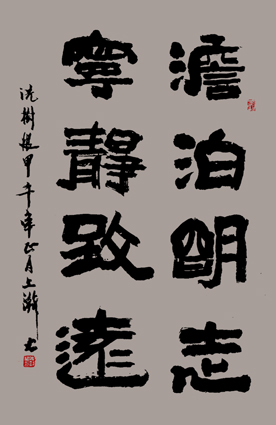 澹泊明志
寧靜致遠
冼樹根甲午年正月上澣書